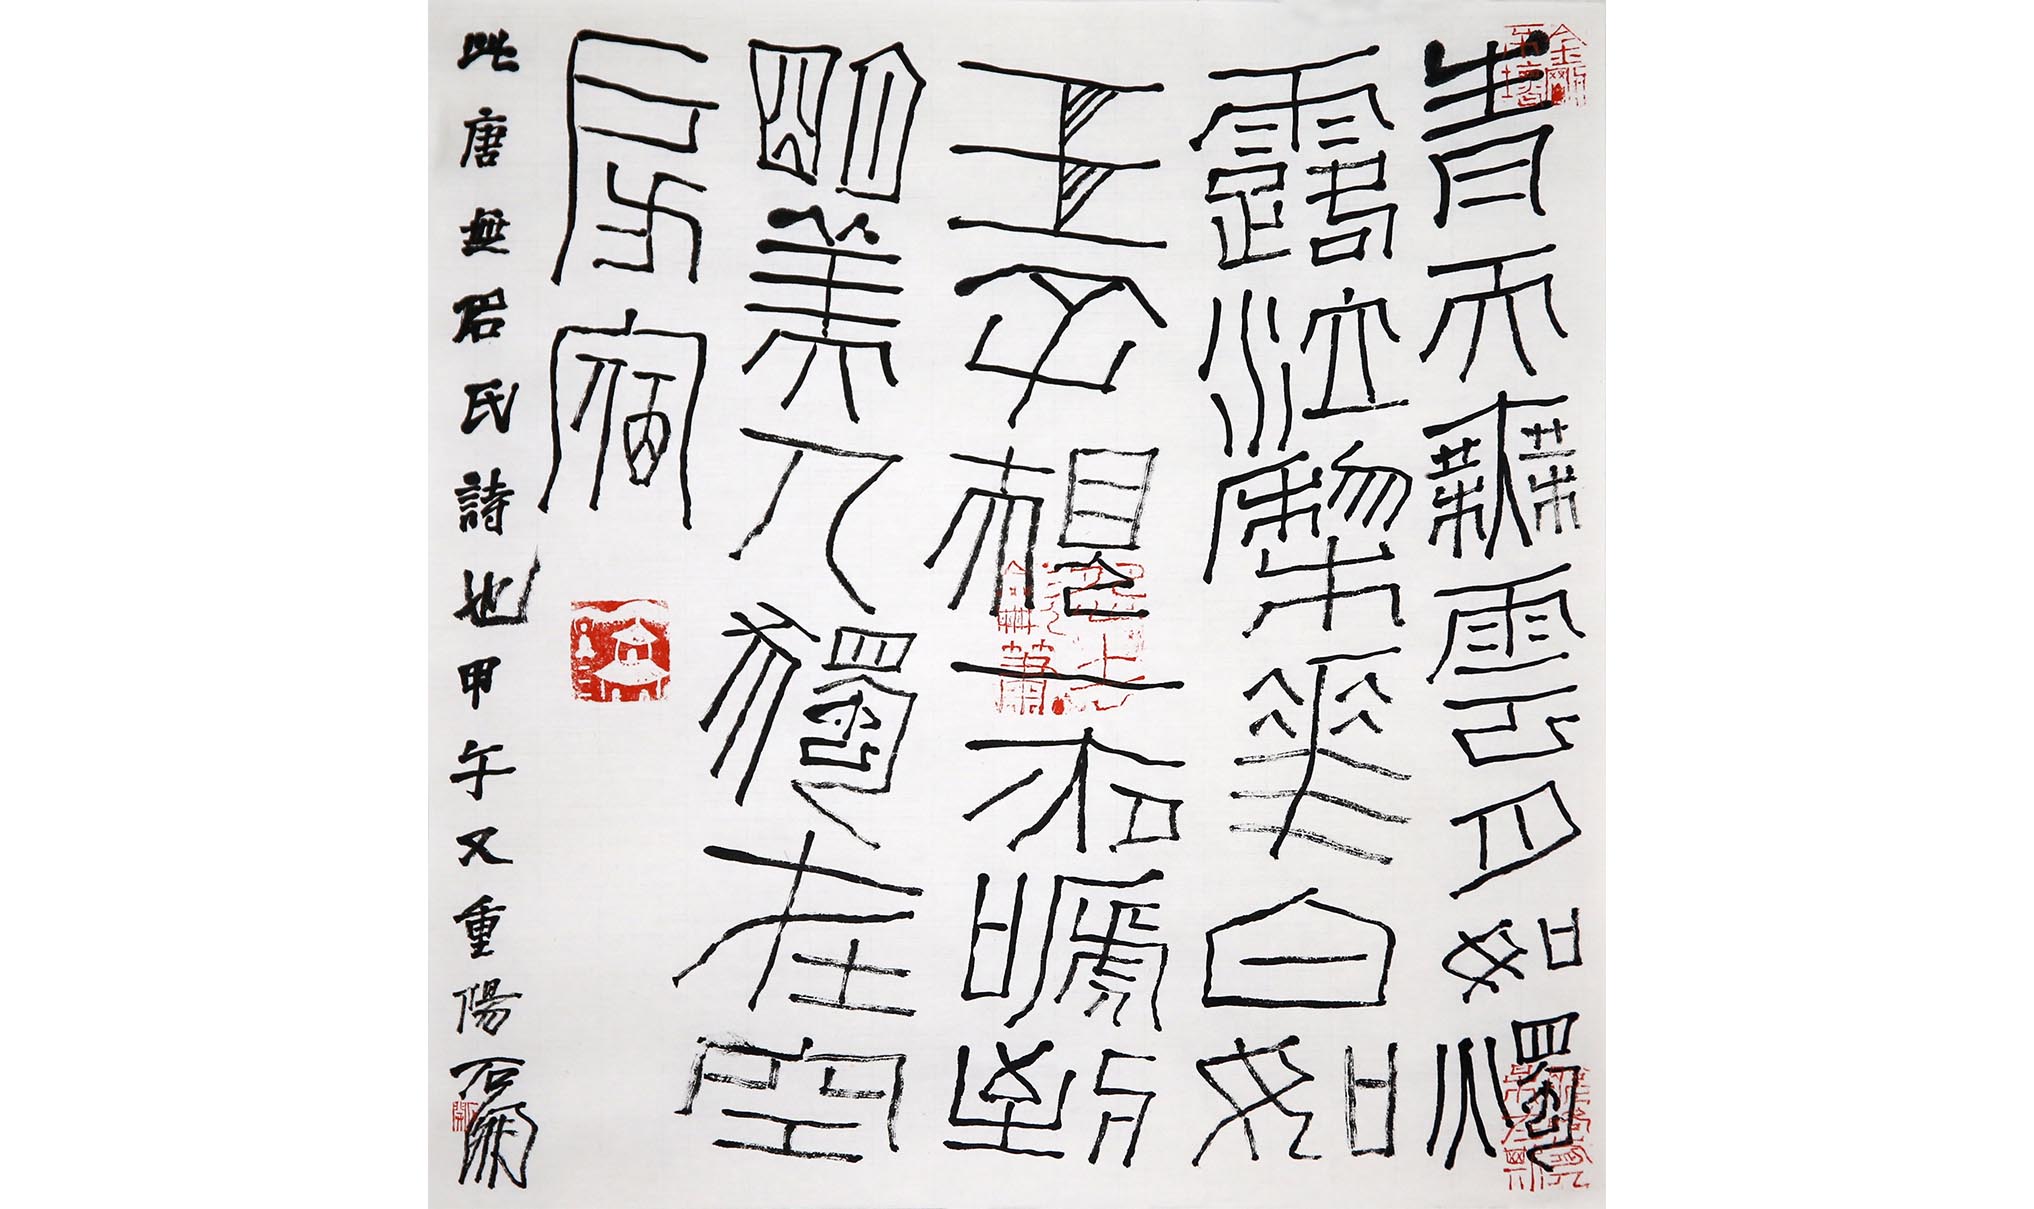 青天無雲月如燭
露泣梨花白如
玉子規一夜啼到
明美人獨在空
房宿
此唐無名氏詩也甲午又重陽石開